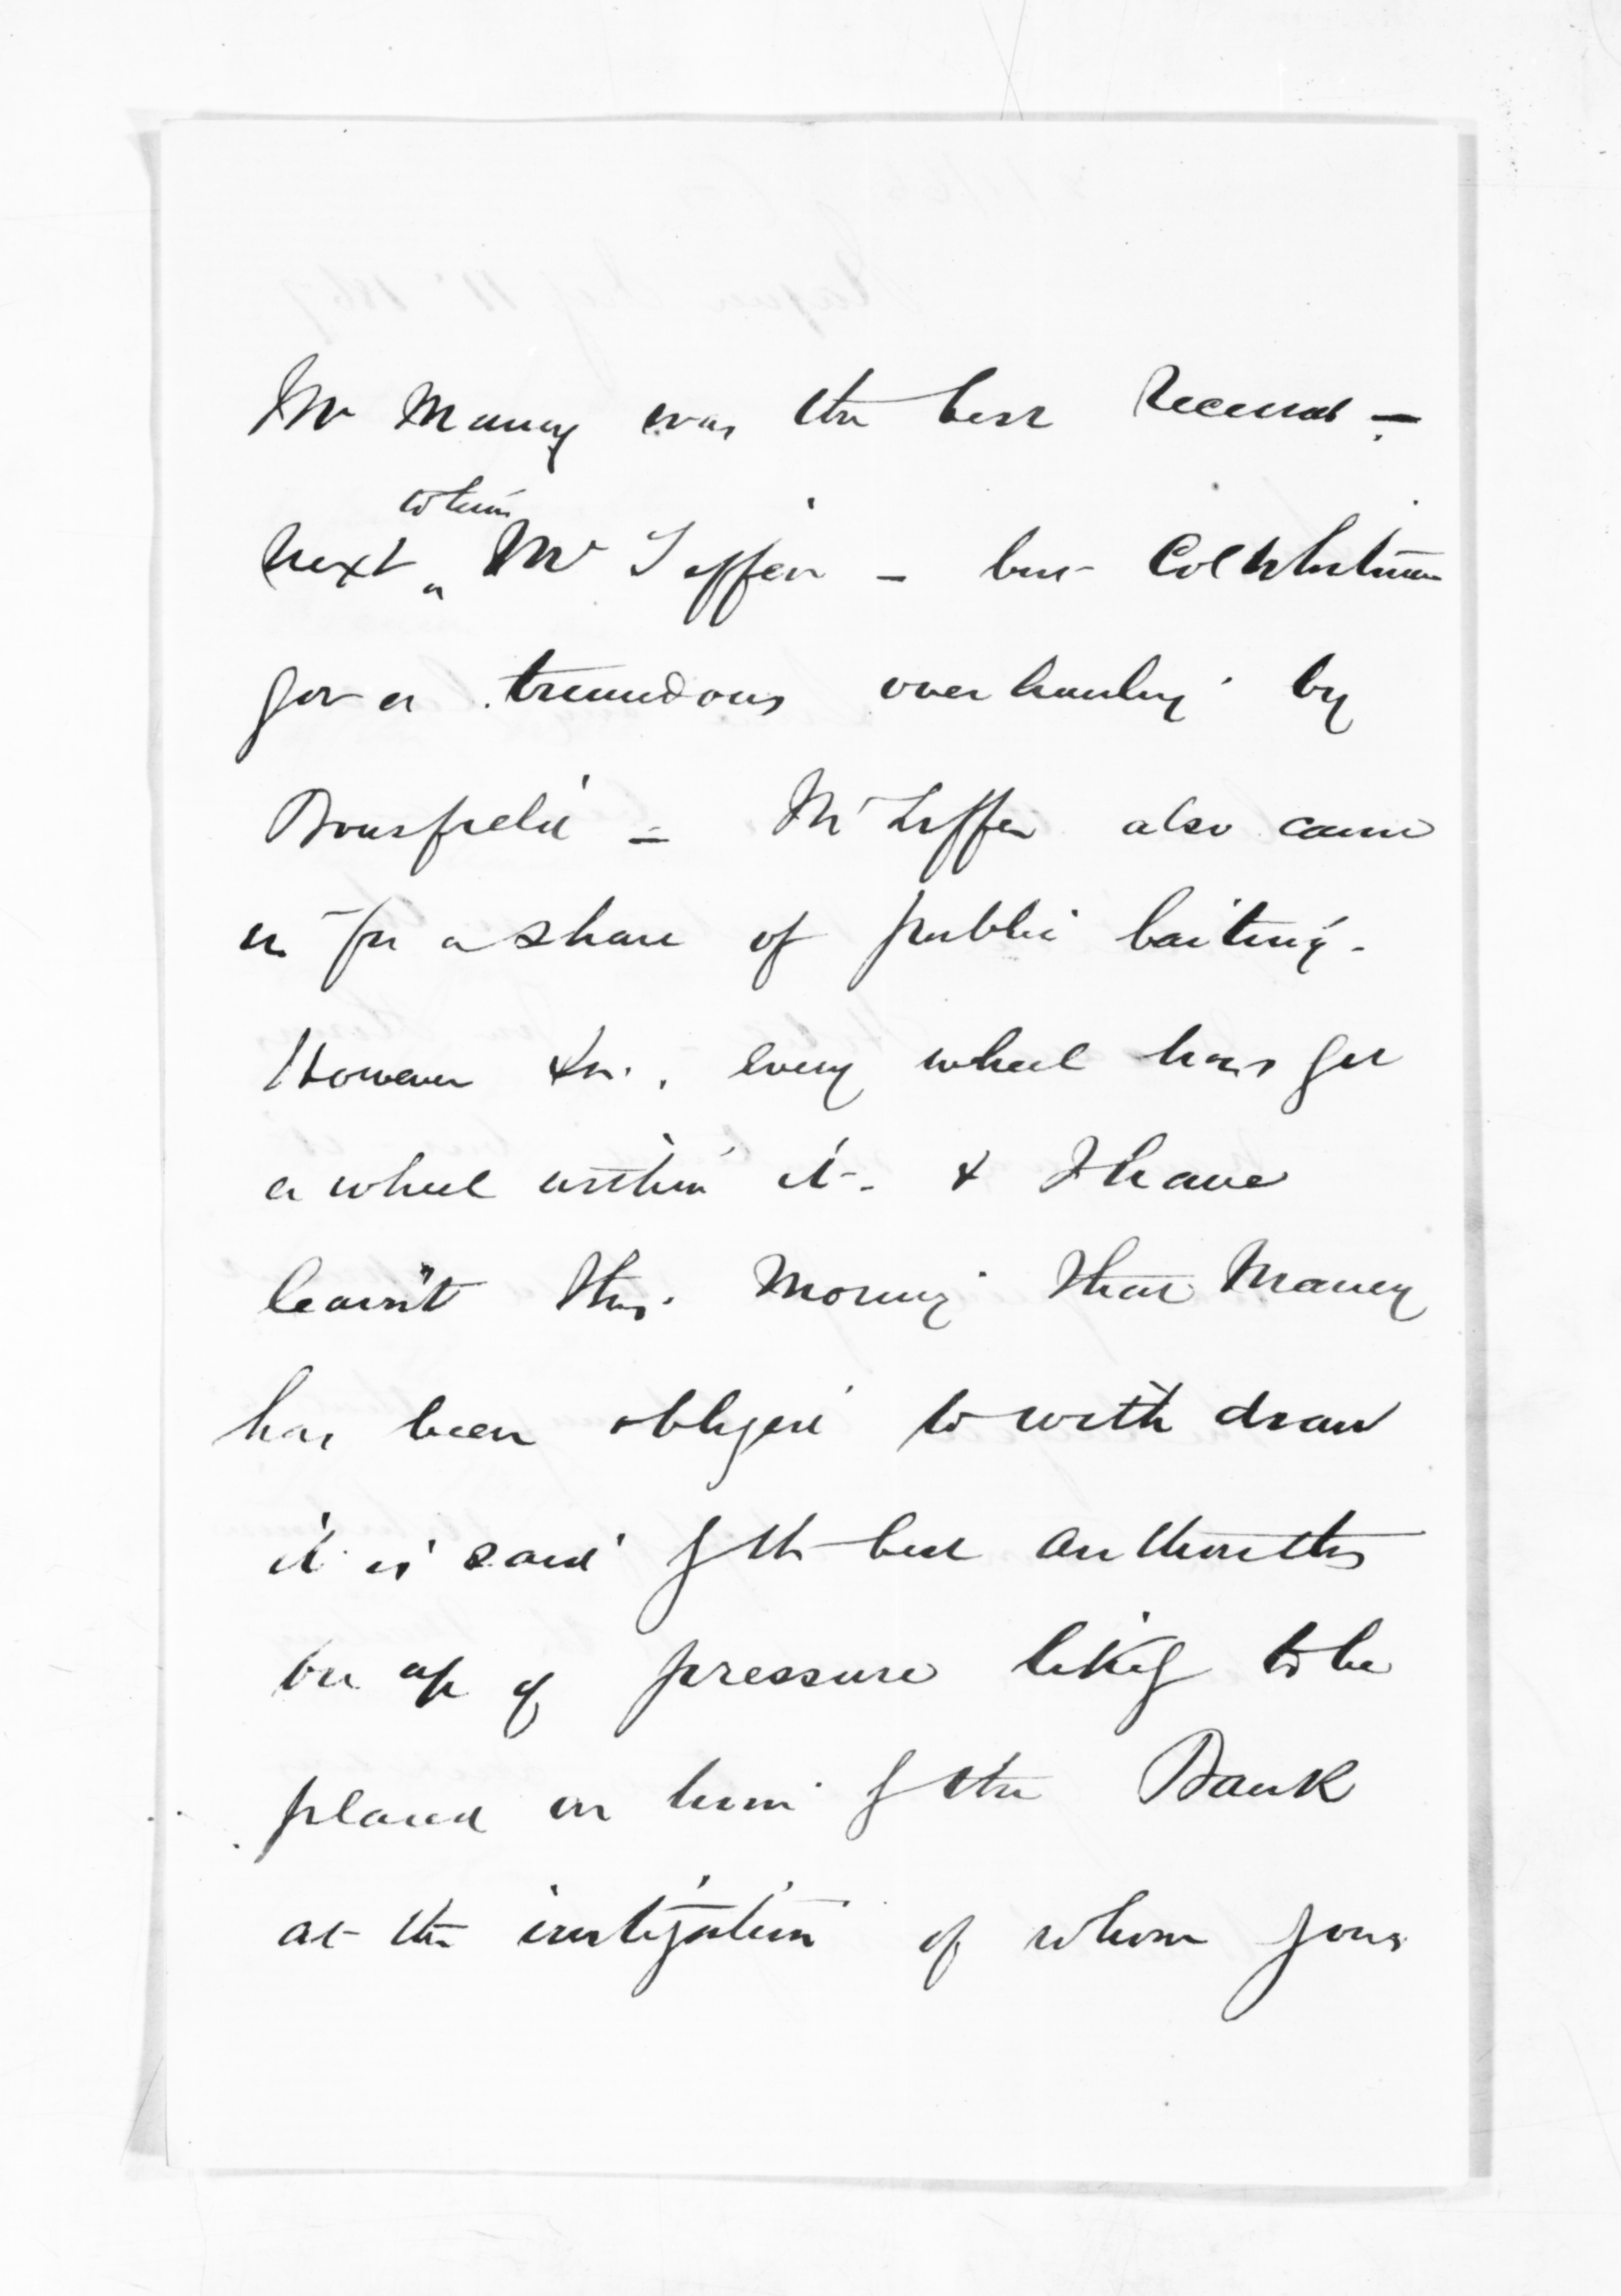 Mr Maney was the best Received -
to him
Next Mr Tiffen - but Col Whitmore
got a tremendous over hauling by
Bousfield - Mr Tiffen also came
in for a share of public baiting.
However Sir, every wheel has got
a wheel within it - & I have
learnt this Morning that Maney
has been obliged to with draw
it is said f the best authorities
on of pressure likely to be
placed on him f the Bank
at the instigation of whom your